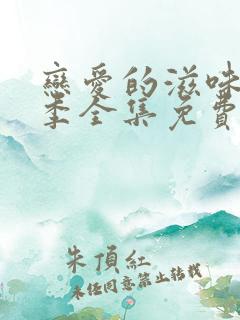 戀愛的滋味
季全集免費
朱頂紅
未任同意禁止轉載